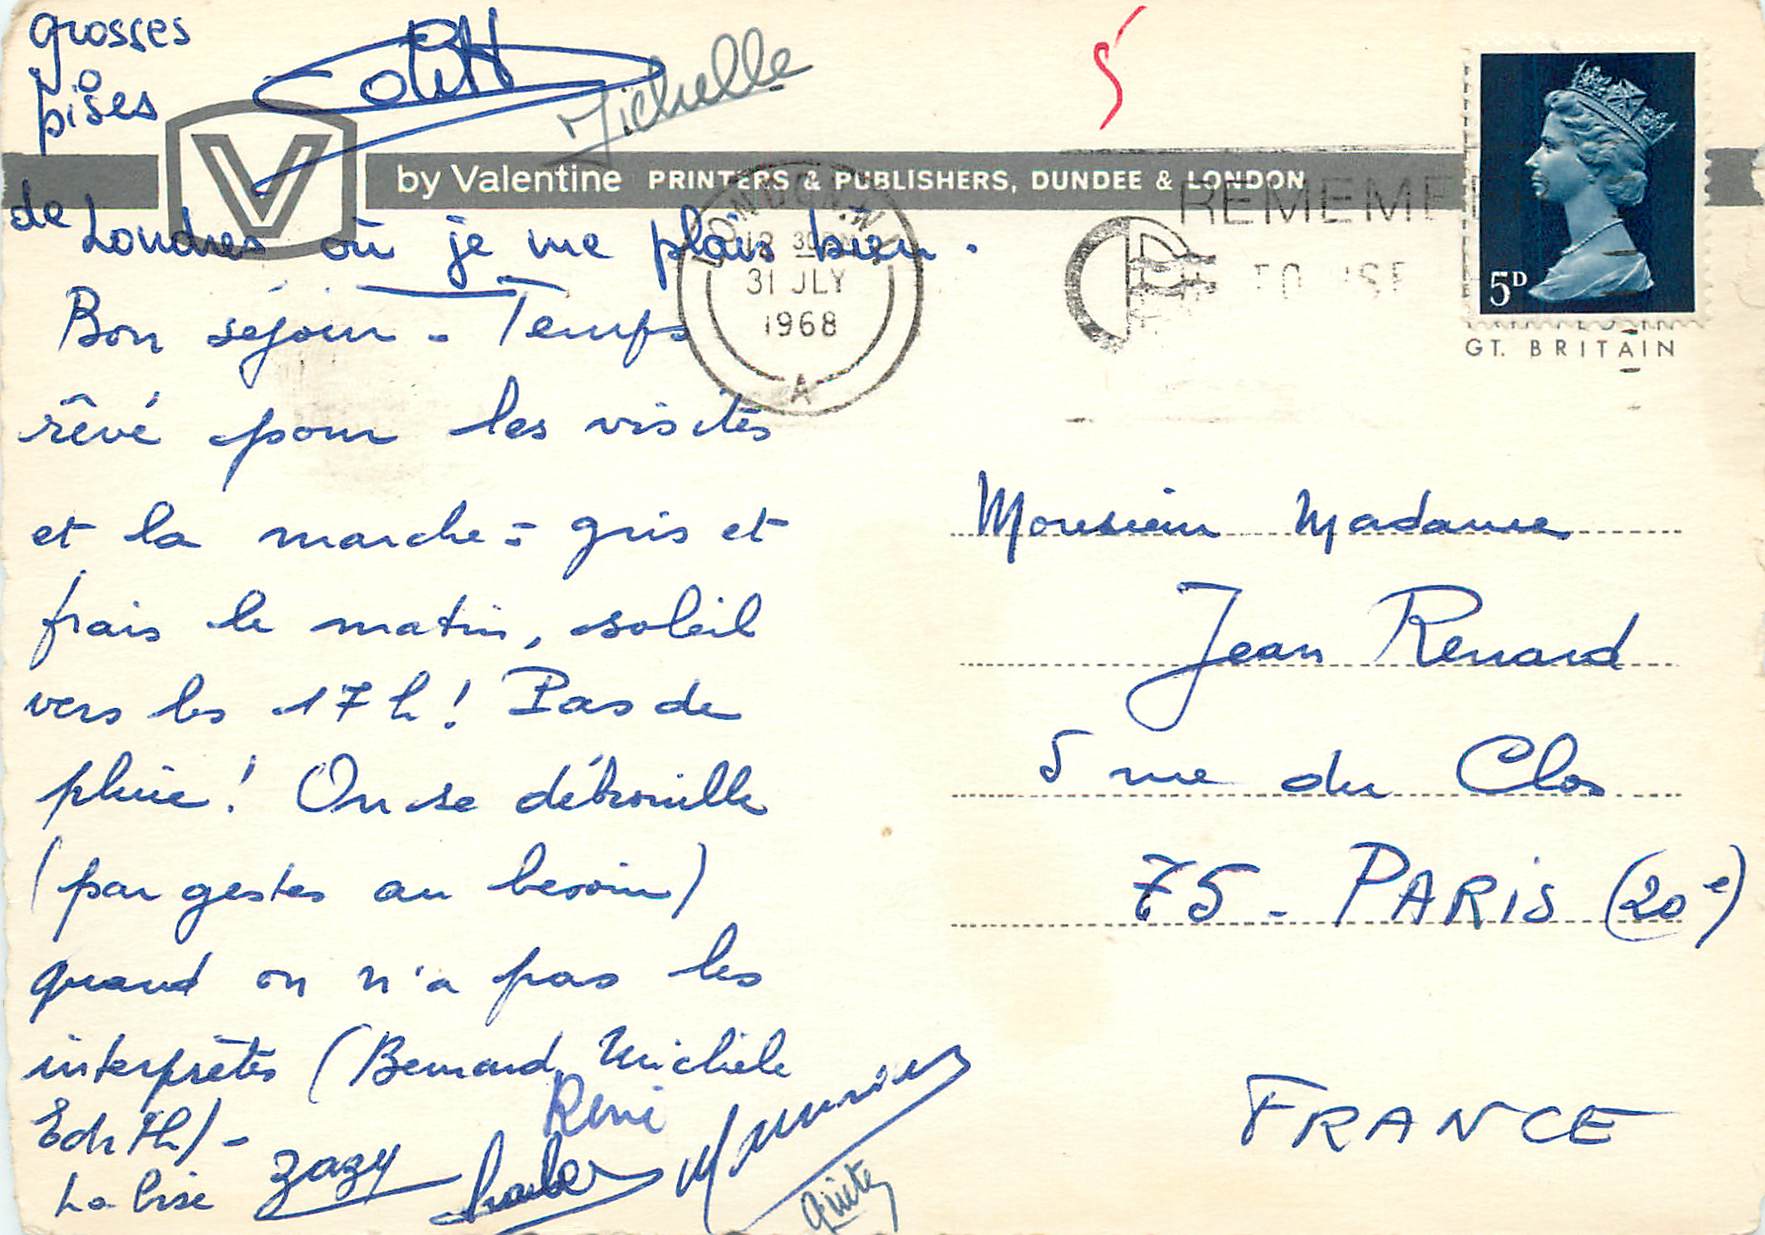 grosses
bises
Michelle
V
by Valentine PRINTERS & PUBLISHERS, DUNDEE & LONDON
de Londres où je me plais bien.
Bon séjour - Temps
rêvé pour les visites
et la marche = gris et
frais le matin, soleil
vers les 17 h ! Pas de
pluie ! On se débrouille
(par gestes au besoin)
quand on n'a pas les
interprètes (Bernard, Michèle
Edith) -
La bise Zazy
René
Charles
5
LONDON
30
31 JLY
1968
A
REMEMBE
TO USE
5D
GT. BRITAIN
Monsieur Madame
Jean Renard
5 rue du Clos
75 - PARIS (20e)
FRANCE